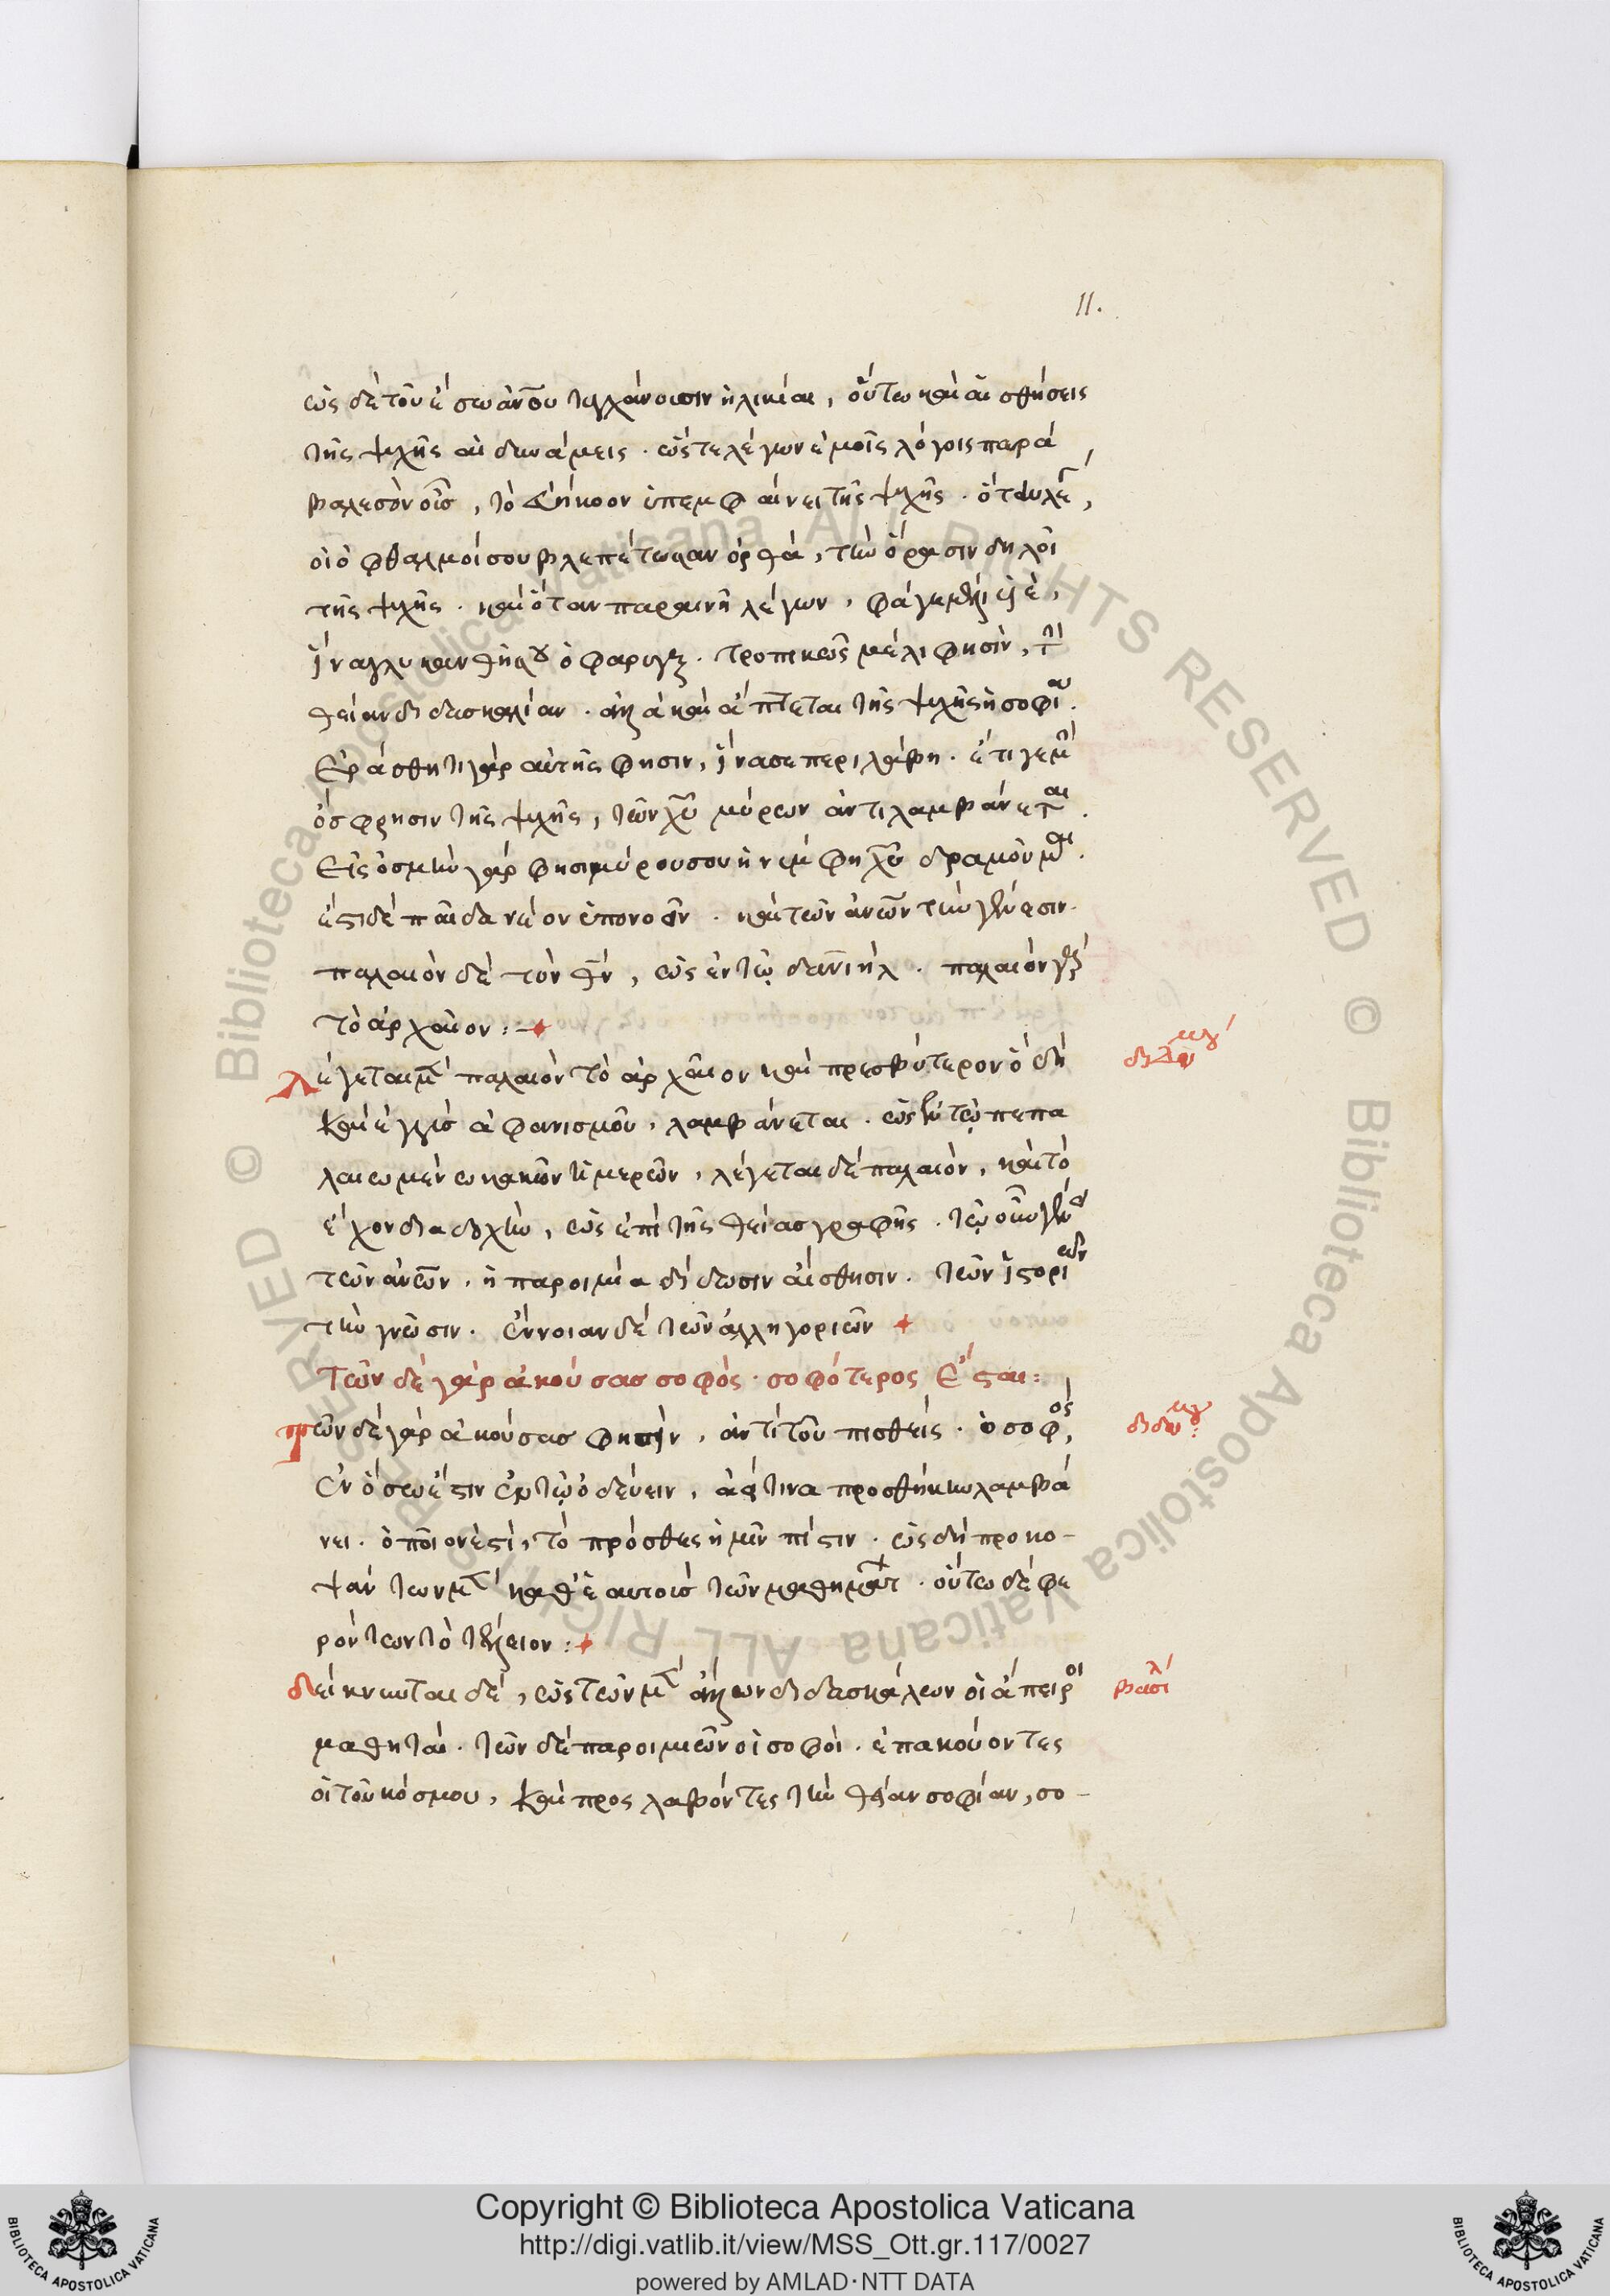 11.
ὡς δὲ τοῦ ἔσω ἀνου τυγχάνουσιν ἡλικίαι, οὕτω καὶ αἰσθήσεις
τῆς ψυχῆς αἱ δυνάμεις. ὥστε λέγων ἐμοῖς λόγοις παρά
βαλε σὸν οὖς, τὸ ὑπεμφαίνει τῆς ψυχῆς. ὅταν λέ,
οἱ ὀφθαλμοί σου βλεπέτωσαν ὀρθά, τὴν ὅρασιν δηλοῖ
τῆς ψυχῆς. καὶ ὅταν παραινῆ λέγων, φάγε μέλι υἱέ,
ἵνα γλυκανθῆ σου ὁ φαρυγξ. τροπικῶς μέλι φησὶν, τὴν
θείαν διδασκαλίαν. ἀλλὰ καὶ ἅπτεται τῆς ψυχῆς ἡ σοφία.
Ἐράσθητι γὰρ αὐτῆς φησιν, ἵνα σε περιλάβη. ἔτι γε μὴν
ὄσφρησιν τῆς ψυχῆς, τῶν χυ μύρων ἀντιλαμβάνεται.
Εἰς ὀσμὴν γάρ φησι μύρου σου ἡ νύμφη χυ δραμοῦμαι.
ἔστι δὲ παῖδα νέον ὑπονοεῖν. καὶ τῶν ἀνων τὴν γένεσιν.
παλαιὸν δὲ τὸν θν, ὡς ἐν τῷ δανιήλ. παλαιὸν γὰρ
τὸ ἀρχαῖον:
Λέγεται μὲν παλαιὸν τὸ ἀρχαῖον καὶ πρεσβύτερον ὃ δὴ
καὶ ἐγγὺς ἀφανισμοῦ, λαμβάνεται. ὡς ἐν τῷ πεπα
λαιωμένω κακῶν ἡμερῶν, λέγεται δὲ παλαιὸν, καὶ τὸ
ἔχον διαδοχὴν, ὡς ἐπὶ τῆς θείας γραφῆς. τῷ
τῶν ἀνων. ἡ παροιμία δίδωσιν αἴσθησιν. τῶν ἱστοριῶν
τὴν γνῶσιν. ἔννοιαν δὲ τῶν ἀλληγοριῶν
Τῶν δὲ γὰρ ἀκούσας σοφὸς. σοφώτερος ἔσται:
Τῶν δὲ γὰρ ἀκούσας φησὶν, ἀντὶ τοῦ πισθεὶς. ὁ σοφός,
ἐν ὅσω ἐστὶν ἐν τῷ ὁδεύειν, ἀεί τινα προσθήκην λαμβά
νει. ὁποῖον ἐστὶ, τὸ πρόσθες ἡμῖν πίστιν. ὡς δὴ προκο-
ψάντων μὲν καθ' ἑαυτοὺς τῶν μαθημάτ. οὕτω δὲ φε
ρόντων τὸ τέλειον:
δείκνυται δέ, ὡς τῶν μὲν ἄλλων διδασκάλων οἱ ἄπειροι
μαθηταὶ. τῶν δὲ παροιμιῶν οἱ σοφοὶ. ἐπακούοντες
οἱ τοῦ κόσμου, καὶ προσλαβόντες τὴν θείαν σοφίαν, σο-
διδύμου
βασιλ
Copyright © Biblioteca Apostolica Vaticana
http://digi.vatlib.it/view/MSS_Ott.gr.117/0027
powered by AMLAD·NTT DATA
BIBLIOTECA APOSTOLICA VATICANA
BIBLIOTECA APOSTOLICA VATICANA
© Biblioteca Apostolica Vaticana ALL RIGHTS RESERVED
© Biblioteca Apostolica Vaticana ALL RIGHTS RESERVED